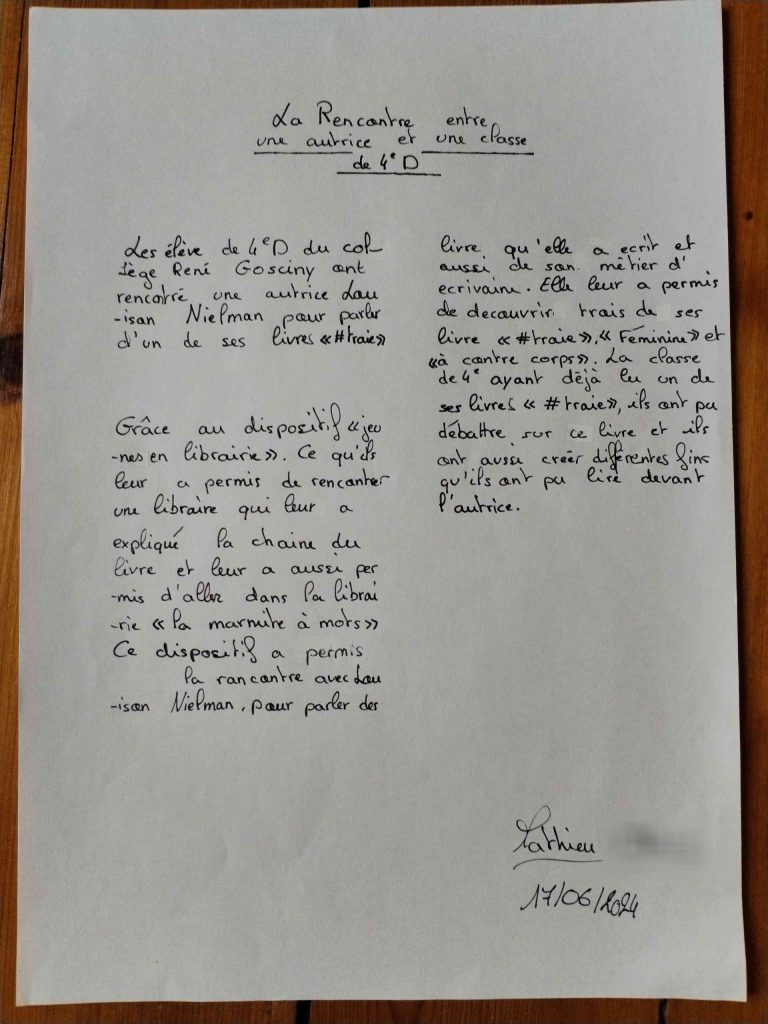 La Rencontre entre
une autrice et une classe
de 4e D
Les élève de 4eD du col-
lège René Gosciny ont
rencontré une autrice Lou
-ison Nielman pour parler
d'un de ses livres «#traie»
Grâce au dispositif «jeu
-nes en librairie». Ce qu'ils
leur a permis de rencontrer
une libraire qui leur a
expliqué la chaine du
livre et leur a aussi per
-mis d'aller dans la librai
-rie «la marmite à mots»
Ce dispositif a permis
la rancontre avec Lou
-ison Nielman, pour parler des
livre qu'elle a ecrit et
aussi de son métier d'
ecrivaine. Elle leur a permis
de decouvrir trois de ses
livre «#traie», «Féminine» et
«à contre corps». La classe
de 4e ayant déjà lu un de
ses livres «#traie», ils ont pu
débattre sur ce livre et ils
ont aussi créer différentes fins
qu'ils ont pu lire devant
l'autrice.
Mathieu
17/06/2024